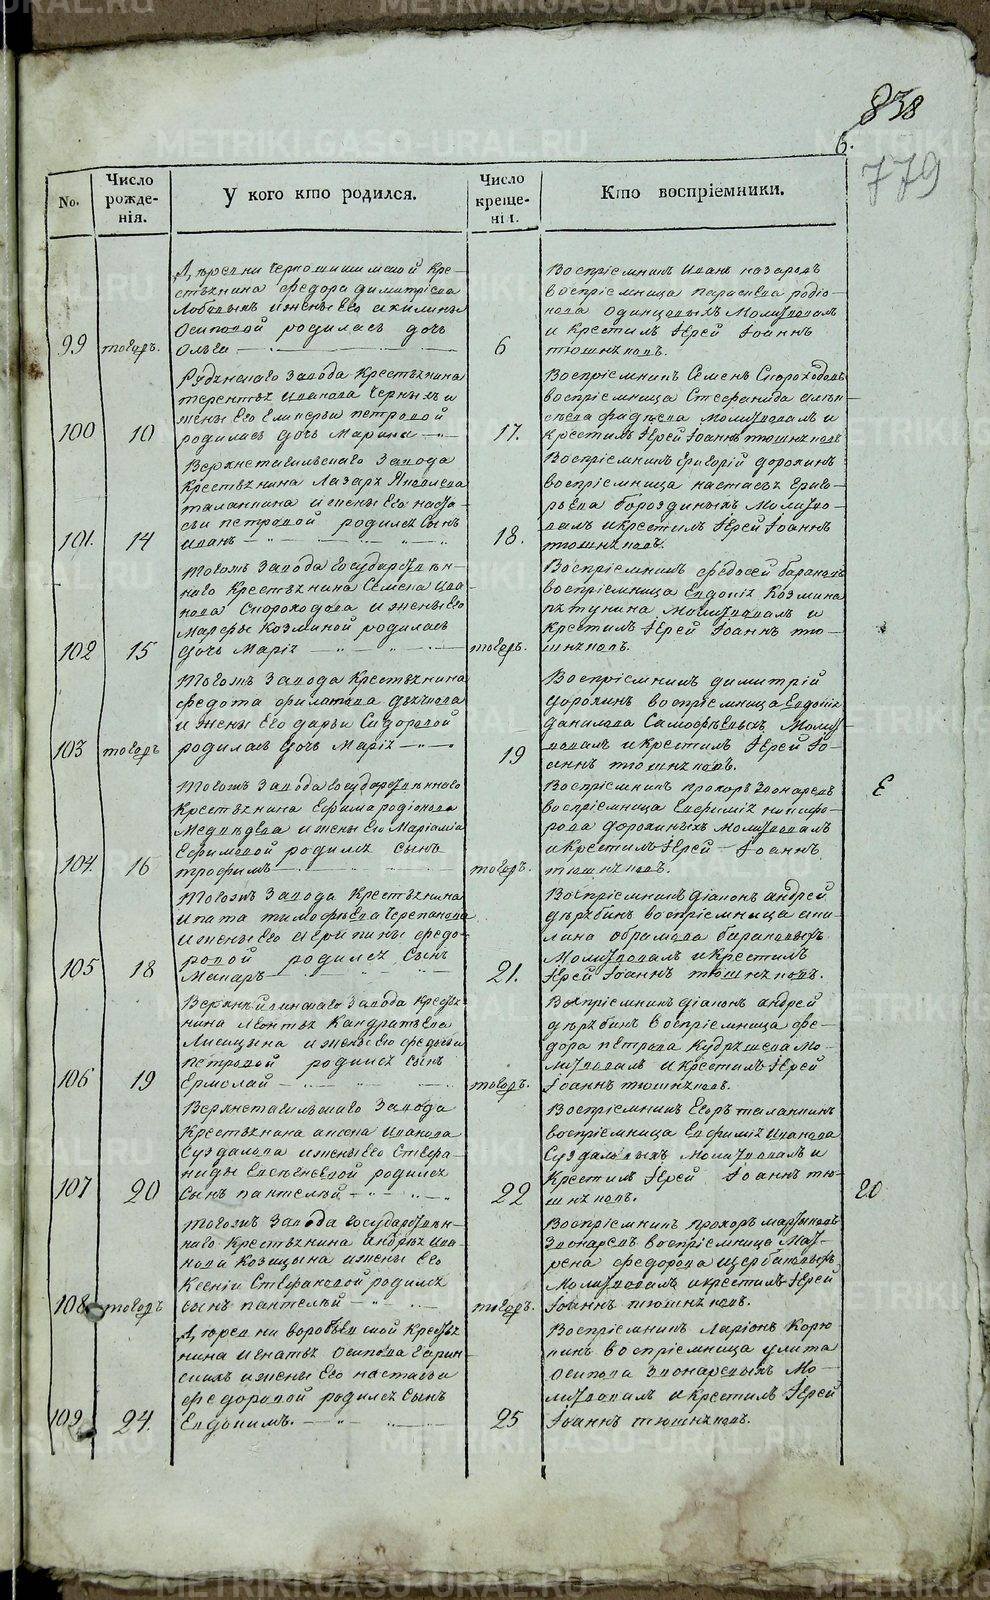 838
6.
779
No.
Число рожде-нія.
У кого кто родился.
Число креще-нія.
Кто воспріемники.
99
тогожъ.
Деревни Чернош… Кре-
стьянина Федора Димитріева
Лобовыхъ и жены Его Акилины
Осиповой родилась дочь
Ольга
6
Воспріемникъ Иванъ Назаровъ
воспріемница Параскева родіо-
нова Одинцовыхъ Молитвовалъ
и крестилъ Іерей Іоаннъ
тюшняковъ.
100
10
Рудянскаго Завода Крестьянина
терентья Иванова Черныхъ и
жены Его Гликерьи петровой
родилась дочь Марина
17.
Воспріемникъ Семенъ Скороходовъ
воспріемница Стефанида
Фадѣева Молитвовалъ и
крестилъ Іерей Іоаннъ тюшняковъ
101.
14
Верхнетагильскаго Завода
Крестьянина Лазаря Яковлева
таланкина и жены Его наста-
сьи петровой родился Сынъ
Иванъ
18.
Воспріемникъ григорій дорохинъ
воспріемница настасья григо-
рьева бороздиныхъ Молитво-
валъ и крестилъ Іерей Іоаннъ
тюшняковъ.
102
15
тогожъ Завода государствен-
наго Крестьянина Семена Ива-
нова Скороходова и жены Его
Марфы Козминой родилась
дочь Марія
тогожъ.
Воспріемникъ федосей барановъ
воспріемница Евдокія Козмина
пѣтунина Молитвовалъ и
крестилъ Іерей Іоаннъ тю-
шняковъ.
103
тогожъ
тогожъ Завода Крестьянина
федота филатова
и жены Его дарьи Сидоровой
родилась дочь Марія
19
Воспріемникъ димитрій
дорохинъ воспріемница Евдокія
данилова Самофѣевыхъ Молит-
вовалъ и крестилъ Іерей Іо-
аннъ тюшняковъ.
104.
16
тогожъ Завода государственнаго
Крестьянина Ефима родіонова
Медвѣдева и жены Его Маріаміи
Ефимовой родился Сынъ
трофимъ
тогожъ.
Воспріемникъ прохоръ Звонаревъ
воспріемница Евфимія никифо-
рова дорохиныхъ молитвовалъ
и крестилъ Іерей Іоаннъ
тюшняковъ.
Е
105
18
тогожъ Завода Крестьянина
Ипата тимофѣева Черепанова
и жены Его Агрипины федо-
ровой родился Сынъ
Макаръ
21.
Воспріемникъ діаконъ андрей
дерябинъ воспріемница аки-
лина абрамова барановыхъ
Молитвовалъ и крестилъ
Іерей Іоаннъ тюшняковъ.
106
19
Верхнейвинскаго Завода крестья-
нина Леонтья Кандратьева
Лисицына и жены Его федосьи
петровой родился сынъ
Ермолай
тогожъ.
Воспріемникъ діаконъ андрей
дерябинъ воспріемница фе-
дора петрова Кудряшева Мо-
литвовалъ и крестилъ Іерей
Іоаннъ тюшняковъ.
107
20
Верхнетагильскаго Завода
Крестьянина Иванова
Суздалова и жены Его Стефа-
ниды Евсѣгнеевой родился
Сынъ пантелей
22
Воспріемникъ Егоръ таланкинъ
воспріемница Евфимія Иванова
Суздаловыхъ Молитвовалъ и
крестилъ Іерей Іоаннъ тю-
шняковъ.
20
108
тогожъ
тогожъ Завода государствен-
наго Крестьянина Андрея Ива-
нова Козицына и жены Его
Ксеніи Стефановой родился
сынъ пантелей
тогожъ.
Воспріемникъ прохоръ мартыновъ
Звонаревъ воспріемница Мат-
рена федорова Щербаковыхъ
Молитвовалъ и крестилъ Іерей
Іоаннъ тюшняковъ.
109
24.
Деревни воробьевской крестья-
нина игнатья Осипова гарин-
скихъ и жены Его настасьи
федоровой родился Сынъ
Евдокимъ.
25
Воспріемникъ Ларіонъ Корю-
кинъ воспріемница улита
осипова Звонаревыхъ Мо-
литвовалъ и крестилъ Іерей
Іоаннъ тюшняковъ.
METRIKI.GASO-URAL.RU